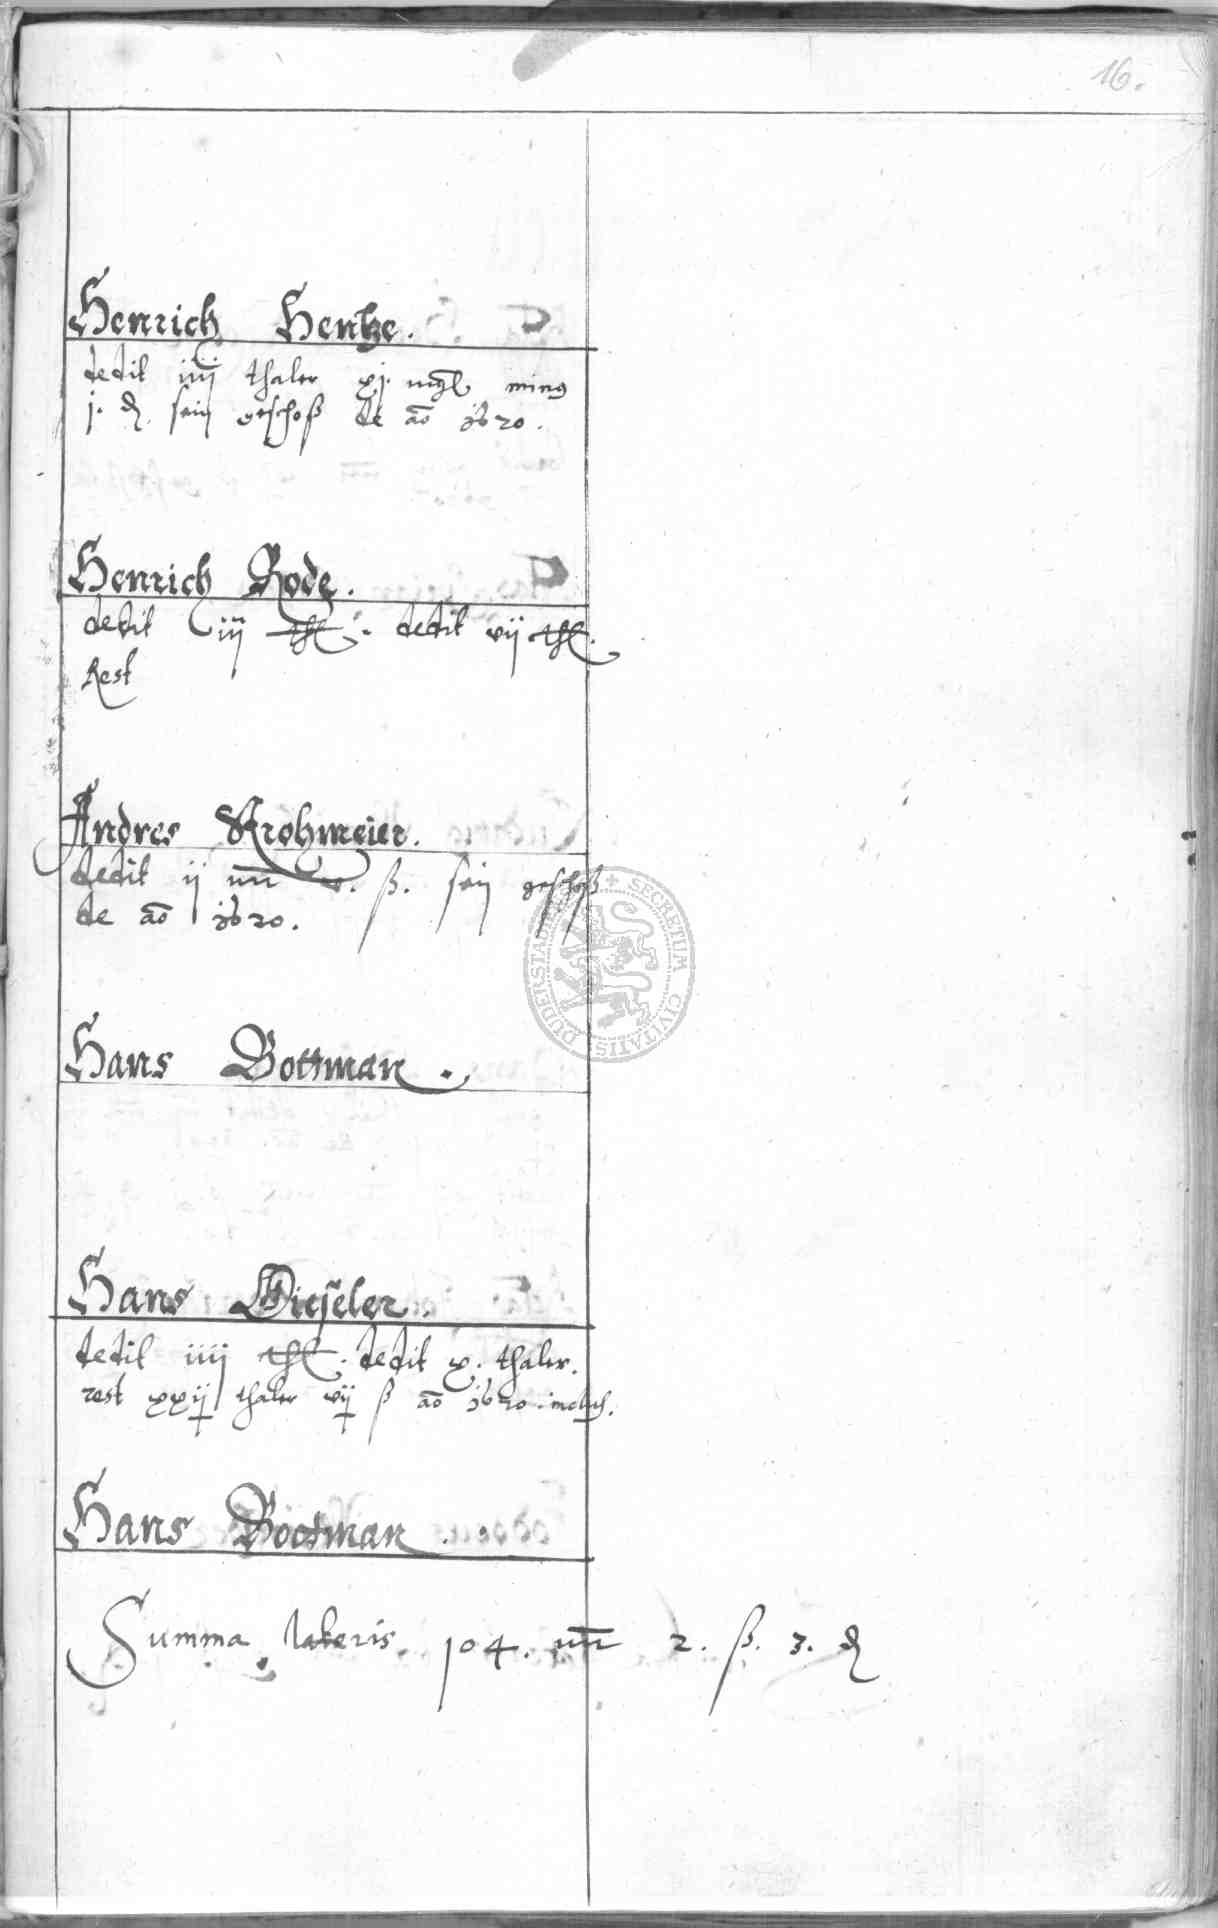 16.
Henrich Hentze.
dedit iiij thaler xj. mgl minus
j. ₰. sein geschoß de ao 1620.
Henrich Rode.
dedit iij thl. dedit vij thl.
Rest
Andres Krohmeier.
dedit ij mr v. ß. sein geschoß
de ao 1620.
Hans Bottman.
Hans Gieseler.
dedit iiij thl. dedit x. thaler.
rest xxij thaler vij ß ao 1620. inclus.
Hans Bootman.
Summa lateris 104. mr 2. ß. 3. ₰
SECRETUM CIVITATIS DUDERSTADIENSIS